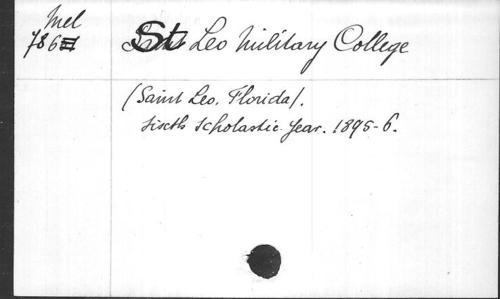 Mel
786
St Leo Military College
(Saint Leo, Florida).
Sixth Scholastic Year. 1895-6.